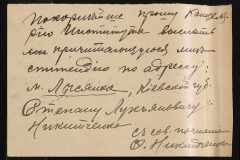 Покорнѣйше прошу Канцеля-
рію Института выслать
мнѣ причитающуюся мнѣ
стипендію по адресу:
м. Лысянка, Кіевской губ.
Степану Лукьяновичу
Никитченко
съ сов. почтен.
С. Никитченко